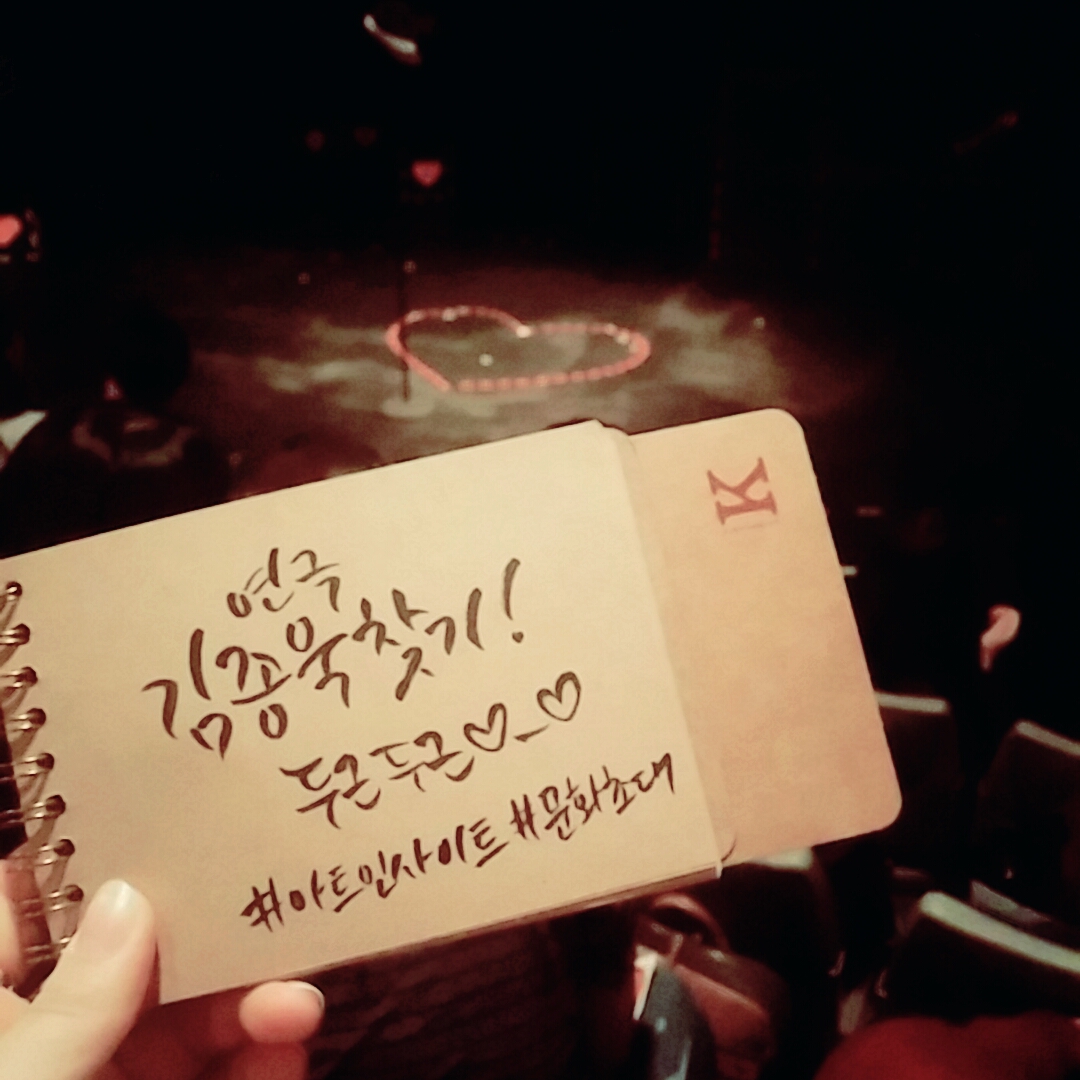 K
연극
김종욱찾기!
두근두근♡_♡
#아트인사이트 #문화초대